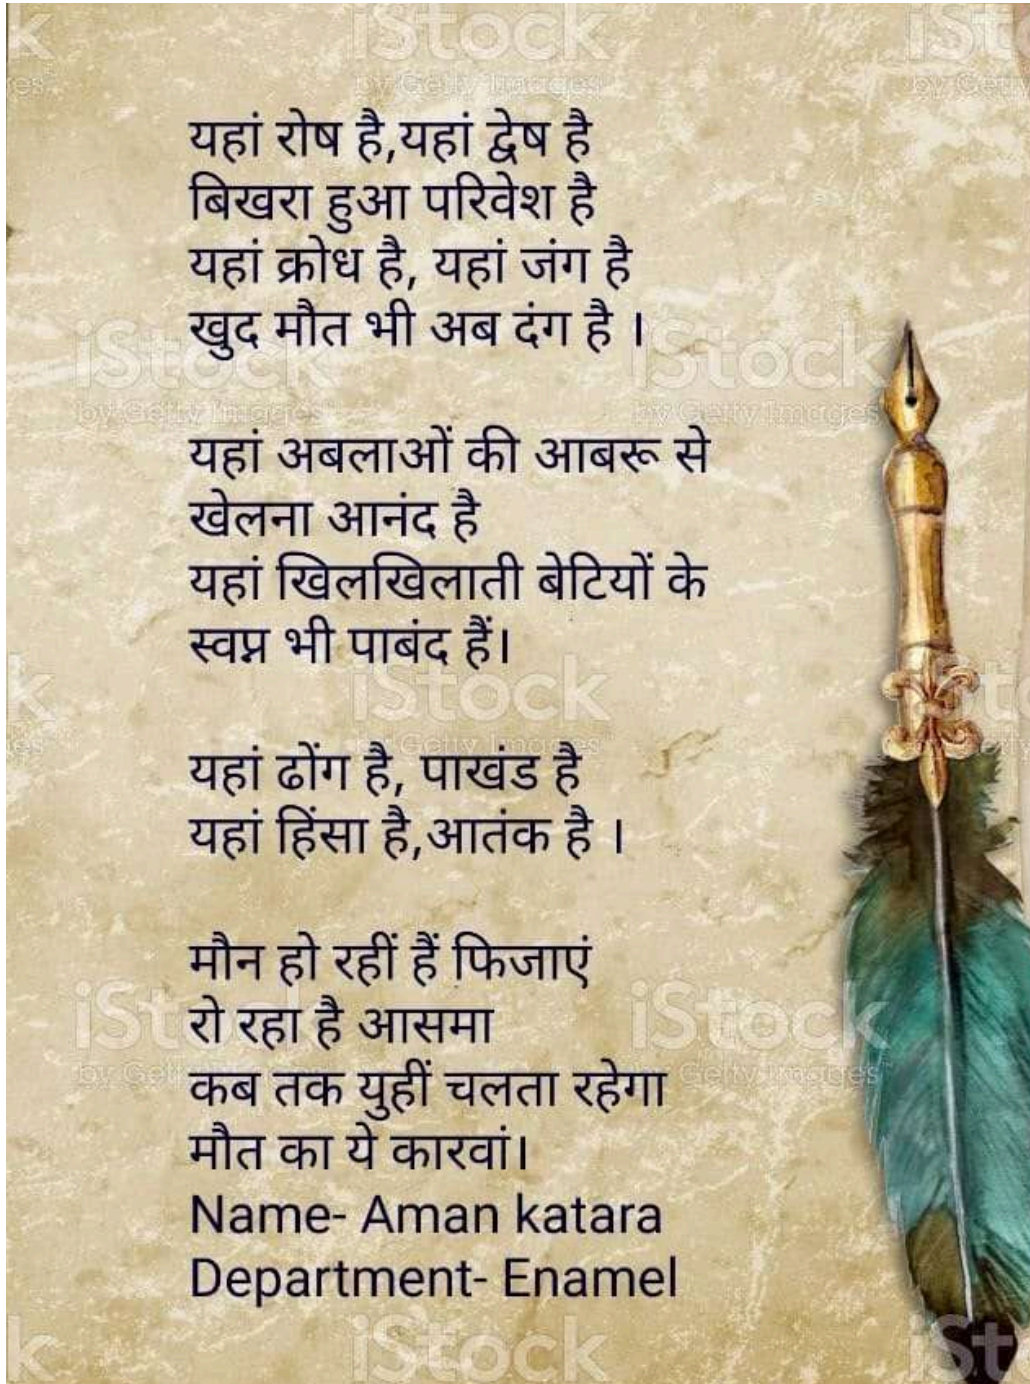 यहां रोष है,यहां द्वेष है
बिखरा हुआ परिवेश है
यहां क्रोध है, यहां जंग है
खुद मौत भी अब दंग है ।
यहां अबलाओं की आबरू से
खेलना आनंद है
यहां खिलखिलाती बेटियों के
स्वप्न भी पाबंद हैं।
यहां ढोंग है, पाखंड है
यहां हिंसा है,आतंक है ।
मौन हो रहीं हैं फिजाएं
रो रहा है आसमा
कब तक युहीं चलता रहेगा
मौत का ये कारवां।
Name- Aman katara
Department- Enamel